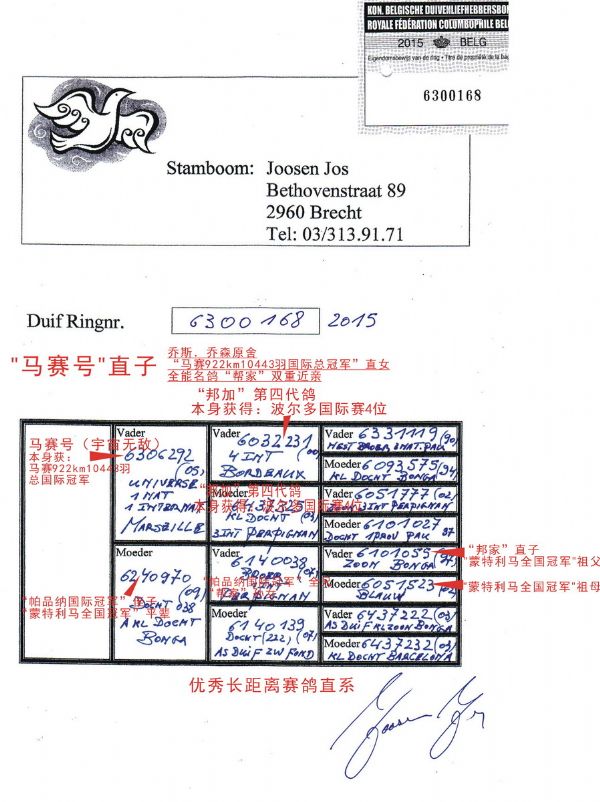 KON. BELGISCHE DUIVENLIEFHEBBERSBON
ROYALE FÉDÉRATION COLOMBOPHILE BEL
2015 BELG
Eigendomsbewijs van de ring • Titre de propriété de la bag
6300168
Stamboom: Joosen Jos
Bethovenstraat 89
2960 Brecht
Tel: 03/313.91.71
Duif Ringnr. 6300168 2015
"马赛号"直子
乔斯．乔森原舍
"马赛922km10443羽国际总冠军"直女
全能名鸽"帮家"双重近亲
"邦加"第四代鸽
本身获得：波尔多国际赛4位
Vader
马赛号（宇宙无敌）
本身获：
马赛922km10443羽
总国际冠军
6306292
(05)
UNIVERSE
1 NAT
1 INTERNAT
MARSEILLE
Moeder
6240970
(09)
DOCHT 038
A KL DOCHT
BONGA
Vader
6032231
(00)
4 INT
BORDEAUX
"邦加"第四代鸽
本身获得：波尔多国际赛4位
Moeder
KL DOCHT (03)
3INT PERPIGNAN
Vader
6140038
PERPIGNAN
Moeder
6140139
DOCHT (222) (07)
AS DUIF ZW FOND
Vader 6331119 (90)
Moeder 6093575 (94)
KL DOCHT BONGA
Vader 6051777 (02)
3INT PERPIGNAN
Moeder 6101027
DOCHT 1PROV PAU 87
Vader 6101055
ZOON BONGA
Moeder 6051523
BLAUW
Vader 6437222 (03)
AS DUIF KLZOON BONGA
Moeder 6437232 (03)
KL DOCHT BARCELONA
"邦家"直子
"蒙特利马全国冠军"祖父
"蒙特利马全国冠军"祖母
"蒙特利马全国冠军"平辈
优秀长距离赛鸽直系
Joosen Js